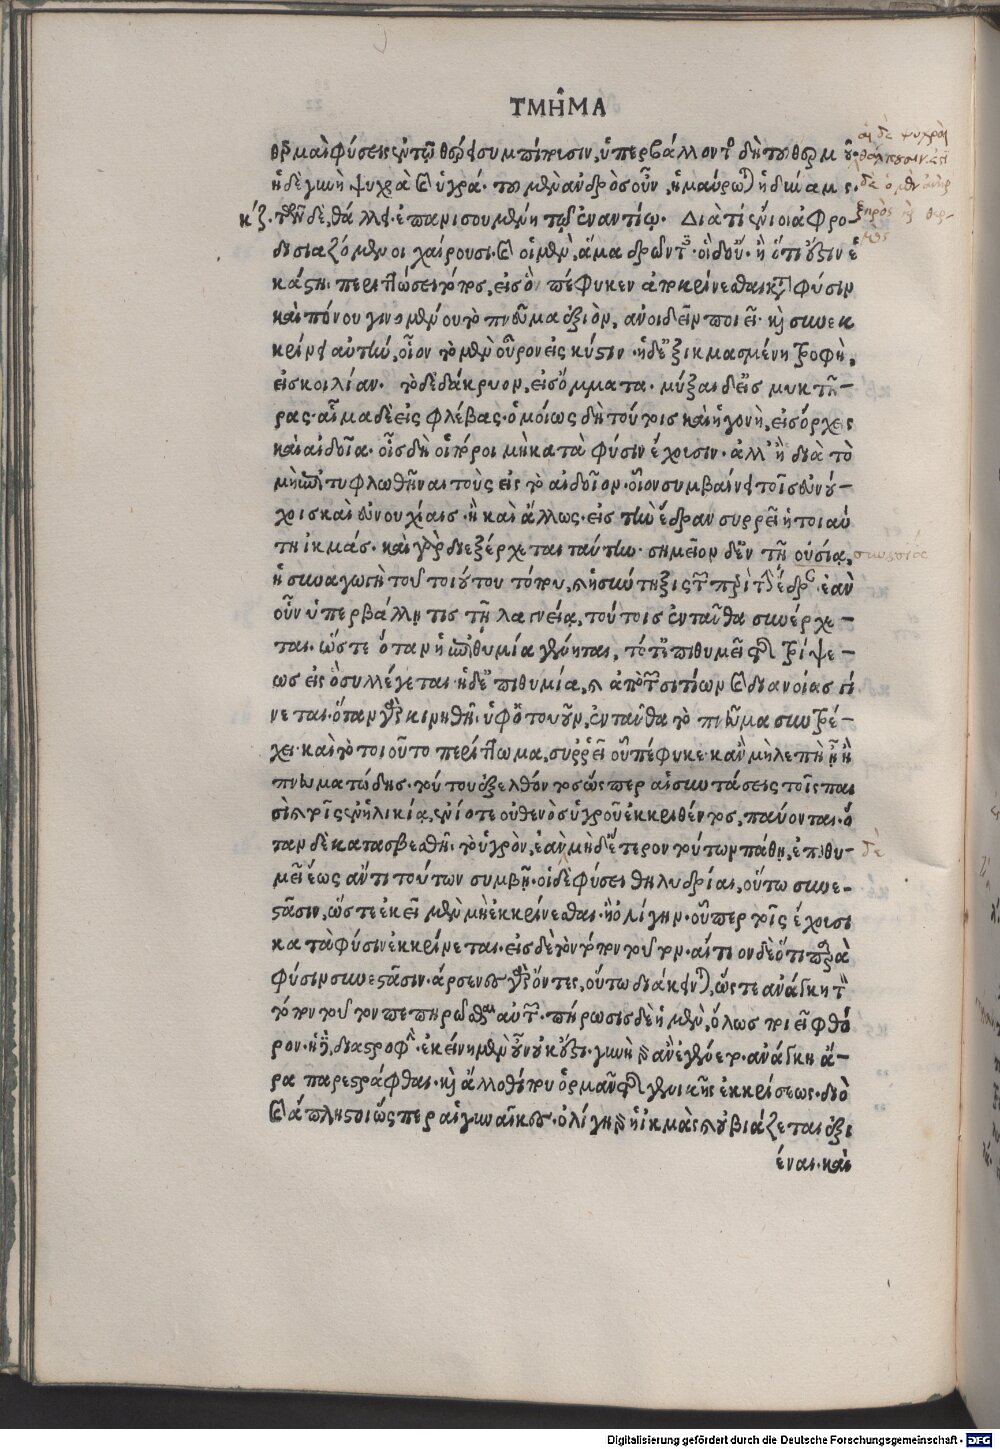 ΤΜΗ͂ΜΑ
θερμαὶ φύσεις ἐν τῷ θέρει συμπίπτουσιν, ὑπερβάλλοντος δὴ τοῦ θερμοῦ·
ἡ δὲ γυνὴ ψυχρὰ καὶ ὑγρά· τοῦ μὲν ἀνδρὸς οὖν, ἠμαύρωται ἡ δύναμις·
κζ. τῶν δὲ, θάλλει· ἐπανισουμένη τῷ ἐναντίῳ. Διὰ τί ἔνιοι ἀφρο-
δισιαζόμενοι χαίρουσι· καὶ οἱ μὲν, ἅμα δρῶντες· οἱ δ' οὔ· ἢ ὅτι οὐσιν ἑ
κάστῃ περιττώσει τόπος, εἰς ὃν πέφυκεν ἀποκρίνεσθαι κατὰ φύσιν
καὶ πόνου γινομένου τὸ πνεῦμα ἐξιὸν, ἀνοιδεῖν ποιεῖ· καὶ συνεκ
κρίνει αὐτὴν, οἷον τὸ μὲν οὖρον εἰς κύστιν· ἡ δ' ἐξικμασμένη τροφὴ,
εἰς κοιλίαν· τὸ δὲ δάκρυον, εἰς ὄμματα· μύξαι δ' εἰς μυκτῆ-
ρας· αἷμα δὲ εἰς φλέβας· ὁμοίως δὴ τούτοις καὶ ἡ γονὴ, εἰς ὄρχεις
καὶ αἰδοῖα· οἷς δὴ οἱ πόροι μὴ κατὰ φύσιν ἔχουσιν· ἀλλ' ἢ διὰ τὸ
μὴ ἐπιτυφλωθῆναι τοὺς εἰς τὸ αἰδοῖον· οἷον συμβαίνει τοῖς εὐνού-
χοις καὶ εὐνουχίαις· ἢ καὶ ἄλλως· εἰς τὴν ἕδραν συρρεῖ ἡ τοιαύ
τη ἰκμάς· καὶ γὰρ διεξέρχεται ταύτῃ· σημεῖον δ' ἐν τῇ οὐσίᾳ, συνουσίας
ἡ συναγωγὴ τοῦ τοιούτου τόπου, καὶ ἡ σύντηξις τῶν περὶ τὴν ἕδραν· ἐὰν
οὖν ὑπερβάλλῃ τις τῇ λαγνείᾳ, τούτοις ἐνταῦθα συνέρχε-
ται· ὥστε ὅταν ἡ ἐπιθυμία γένηται, τότ' ἐπιθυμεῖ τῆς τρίψε-
ως εἰς ὃ συλλέγεται· ἡ δ' ἐπιθυμία, καὶ ἀπὸ τῶν σιτίων καὶ διανοίας γί
νεται· ὅταν γὰρ κινηθῇ ὑφ' ὁτουοῦν, ἐνταῦθα τὸ πνεῦμα συντρέ-
χει· καὶ τὸ τοιοῦτο περίττωμα, συρρεῖ οὗ πέφυκε· κἂν μὴ λεπτὴ ᾖ ἢ
πνευματώδης· τούτου ἐξελθόντος ὥσπερ αἱ συντάσεις τοῖς παι
σὶ καὶ τοῖς ἐν ἡλικίᾳ, ἐνίοτε οὐθενὸς ὑγροῦ ἐκκριθέντος, παύονται· ὅ
ταν δὲ κατασβεσθῇ τὸ ὑγρὸν, ἐὰν μηδέτερον τούτων πάθῃ, ἐπιθυ- δὲ
μεῖ ἕως ἄν τι τούτων συμβῇ· οἱ δὲ φύσει θηλυδρίαι, οὕτω συνε-
στᾶσιν, ὥστε ἐκεῖ μὲν μὴ ἐκκρίνεσθαι· ἢ ὀλίγην· οὗπερ τοῖς ἔχουσι
κατὰ φύσιν ἐκκρίνεται· εἰς δὲ τὸν τόπον τοῦτον· αἴτιον δὲ ὅτι παρὰ
φύσιν συνεστᾶσιν· ἄρσενες γὰρ ὄντες, οὕτω διάκεινται, ὥστε ἀνάγκη τὸν
τόπον τοῦτον πεπηρῶσθαι αὐτῶν· πήρωσις δὲ ἡ μὲν, ὅλως ποιεῖ φθό
ρον· ἡ δὲ, διαστροφήν· ἐκείνη μὲν οὖν οὐκ ἔστι· γυνὴ γὰρ ἂν ἐγένετο· ἀνάγκη ἄ-
ρα παρεστράφθαι· καὶ ἄλλοθί που ὁρμᾶν τῆς γονικῆς ἐκκρίσεως· διὸ
καὶ ἄπληστοι ὥσπερ αἱ γυναῖκες· ὀλίγη γὰρ ἡ ἰκμὰς καὶ οὐ βιάζεται ἐξι
έναι· καὶ
αἱ δὲ ψυχραὶ
θάλπουσιν·
δὲ ὁ μὲν ἀνὴρ
ξηρὸς καὶ θερ-
μὸς
Digitalisierung gefördert durch die Deutsche Forschungsgemeinschaft - DFG